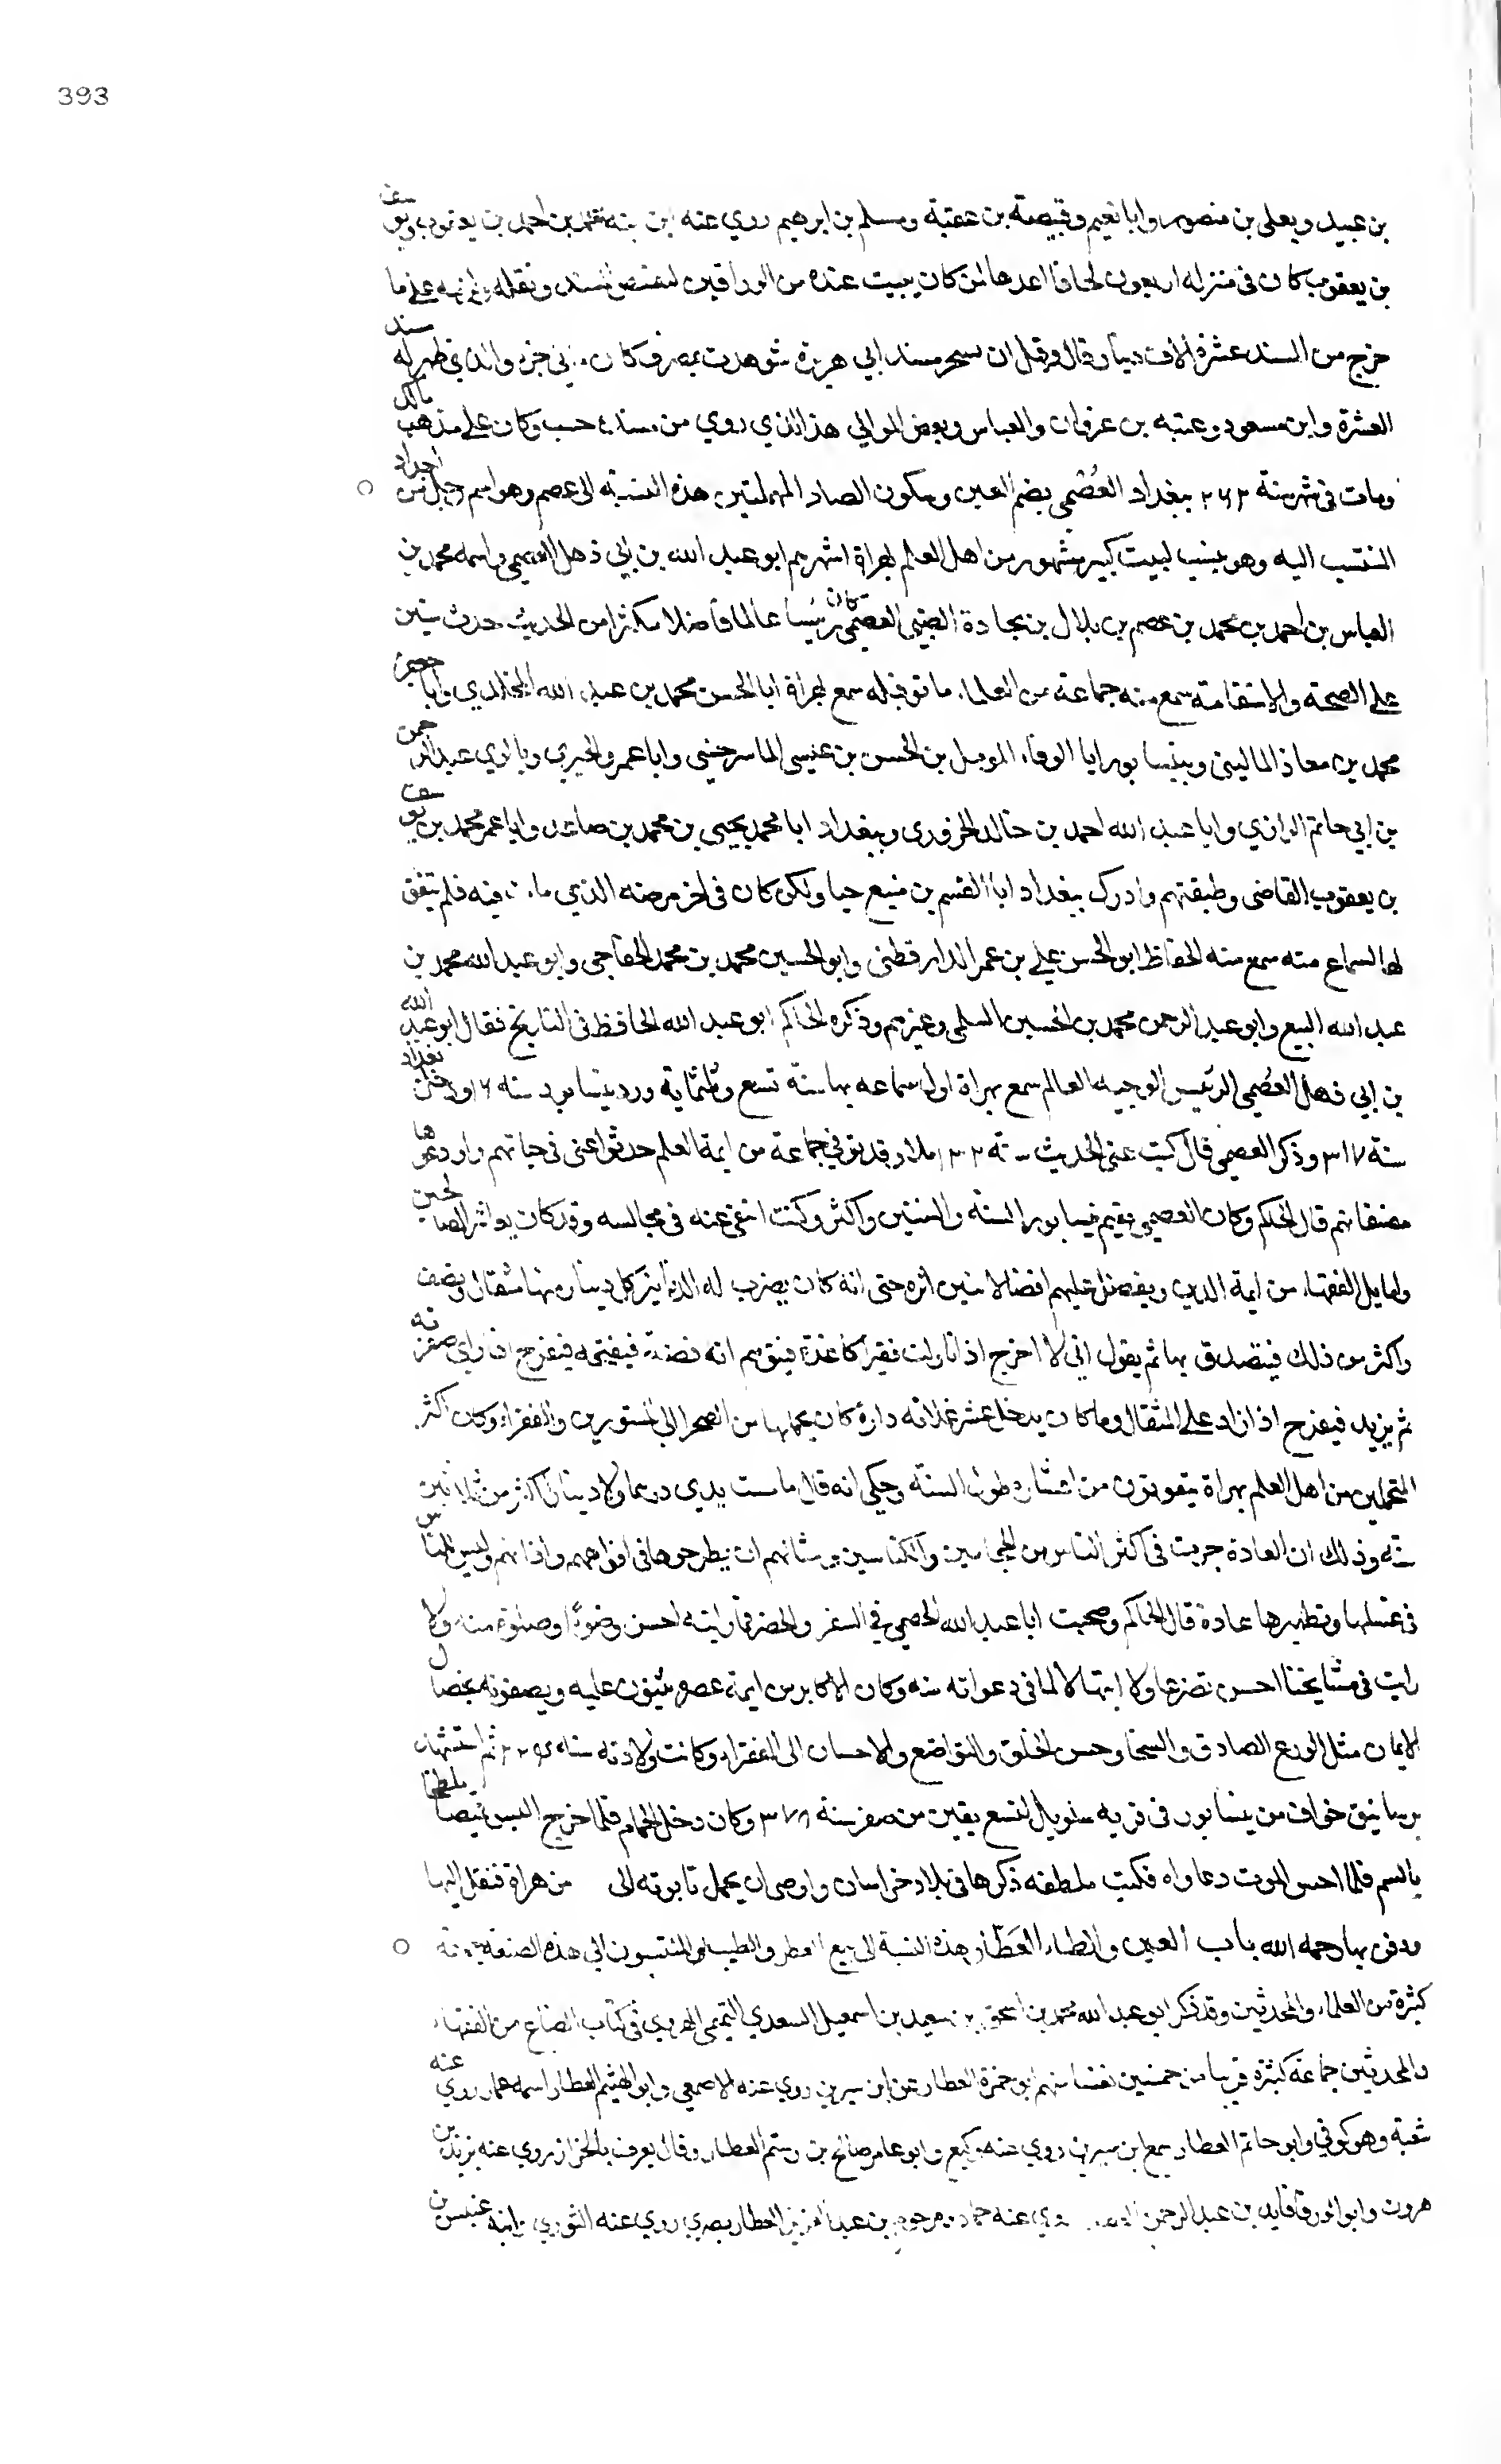 393
بن عبيد ويعلى بن منصور وابا نعيم وقبيصة بن عقبة ومسلم بن ابرهيم روي عنه ابن ابنه محمد بن احمد بن يعقوب ويوسف
بن يعقوب كان في منزله اربعون لحافا اعدها لمن كان يبيت عنده من الوراقين لتبييض المسند ونقله ولزمه على ما
خرج من المسند عشرة الاف دينار قال وقيل ان نسخة مسند ابي هريرة شوهدت بمصر فكان مايتي جزء والذي ظهر له مسند
العشرة وابن مسعود وعتبه بن غزوان والعباس وبعض الموالي هذا الذي روي من مسنده حسب وكان على مذهب مالك
ومات في شهر سنة ٢٦٢ ببغداد العُصْمي بضم العين وسكون الصاد المهملتين هذه النسبة الى عصم وهو اسم رجل من اجداد
المنتسب اليه وهو ينسب لبيت كبير مشهور من اهل العلم بهراة اشهرهم ابو عبد الله بن ابي ذهل العصمي واسمه محمد بن
العباس بن احمد بن محمد بن عصم بن بلال بن بجادة الضبي العصمي كان رئيسا عالما فاضلا مكثرا من الحديث حدث سنين
على الصحة والاستقامة سمع منه جماعة من العلماء ماتوا قبله سمع بهراة ابا الحسن محمد بن عبد الله المخلدي وابا جعفر
محمد بن معاذ الماليني وبنيسابور ابا الوفاء المومل بن الحسن بن عيسى الماسرجسي وابا عمرو الحيري وبالري عبد الرحمن
بن ابي حاتم الرازي وابا عبد الله احمد بن خالد الحزوري وببغداد ابا محمد يحيى بن محمد بن صاعد وابا عمر محمد بن يوسف
بن يعقوب القاضي وطبقتهم وادرك ببغداد ابا القسم بن منيع حيا ولكن كان في اخر مرضه الذي مات فيه فلم يتفق
لها السماع منه سمع منه الحفاظ ابو الحسن علي بن عمر الدارقطني وابو الحسين محمد بن محمد الحجاجي وابو عبد الله محمد بن
عبد الله البيع وابو عبد الرحمن محمد بن الحسين السلمي وغيرهم وذكره الحاكم ابو عبد الله الحافظ في التاريخ فقال ابو عبد الله
بن ابي ذهل العُصْمي الرئيس الوجيه العالم سمع بهراة اول سماعه بها سنة تسع وثلثماية ورد نيسابور سنه ١٦ ودخل بغداد
سنة ٣١٧ وذكر العصمي قال كتب عني الحديث سنة املاء وقد توفي جماعة من ايمة العلم حدثوا عني في حياتهم واودعوها
مصنفاتهم قال الحاكم وكان العصمي يقيم بنيسابور السنة والسنتين واكثر وكنت انتقي عنه في مجالسه وقد كان يعاشر الصالحين
واماثل الفقهاء من ايمة الدين ويفضل عليهم افضالا يبين اثره حتى انه كان يضرب له الدنانير كل دينار منها مثقال ونصف
واكثر من ذلك فيتصدق بها ثم يقول اني لا افرح اذا ناولت فقيرا كاغذة فيتوهم انه فضة فيفتحه فيفرح اذا راى صفرته
ثم يزيد فيفرح اذا زاد على المثقال وما كان يدخل عشر غلاته داره كان يحملها من الصحرا الى المستورين والفقراء وكان اكثر
المتحملين من اهل العلم بهراة يتقوتون من اعشاره طول السنة وحكي انه قال ما مست يدي درهما ولا دينارا اكثر من ثلاثين
سنه وذلك ان العادة جرت في اكثر الناس من الحجامين والكناسين من شانهم ان يطرحوها في افواههم واذانهم وليس للناس
في غسلها وتطهيرها عادة قال الحاكم وصحبت ابا عبد الله العصمي في السفر والحضر فما رايته احسن وضوءا وصلوة منه ولا
رايت في مشايخنا احسن تضرعا ولا ابتهالا لما في دعواته منه وكان الاكابر من ايمة عصره يثنون عليه ويصفونه بخصال
الايمان مثل الورع الصادق والسخا وحسن الخلق والتواضع والاحسان الى الفقراء وكانت ولادته سنه ثم استشهد
برستاق خواف من نيسابور في قريه سلويل لتسع بقين من صفر سنة ٣٧٨ وكان دخل الحمام فلما خرج البس قميصا ملطخا
بالسم فلما احس الموت دعا دواه فكتب ملطفه ذكرها في بلاد خراسان واوصى ان يحمل تابوته الى من هراة فنقل اليها
ودفن بها رحمه الله باب العين والطاء العَطّار هذه النسبة الى بيع العطر والطيب والمنتسبون الى هذه الصنعة جماعة
كثيرة من العلماء والمحدثين وقد ذكر ابو عبد الله محمد بن اسحق بن سعيد بن اسمعيل السعدي التميمي الهروي في كتاب الصناع من الفقهاء
والمحدثين جماعة كثيرة قريبا من خمسين نفسا منهم ابو حمزة العطار عن ابن سيرين روي عنه الاصمعي وابو الهيثم العطار اسمه عمار روي عنه
شعبة وهو كوفي وابو حاتم العطار سمع ابن سيرين روي عنه وكيع وابو عامر صالح بن رستم العطار وقال يعرف بالخزاز روي عنه يزيد بن
هرون وابو الورقا فايد بن عبد الرحمن العطار روي عنه حماد ومرحوم بن عبد العزيز العطار بصري روي عنه الثوري وابنه عنبس بن